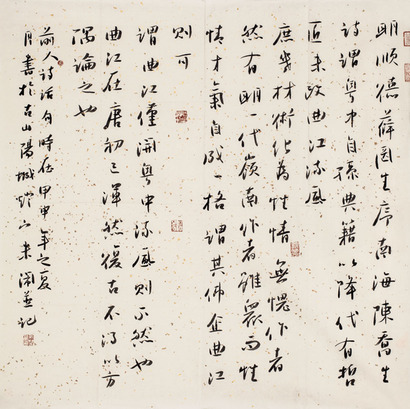 明順德薛岡生序南海陳喬生
詩謂粤中自孫典籍以降代有哲
匠未改曲江流風
庶幾材術化為性情無愧作者
然有明一代嶺南作者雖眾而性
情才氣自成一格謂其佛企曲江
則可
謂曲江僅開粤中流風則不然也
曲江在唐初已渾然復古不得以方
隅論之也
前人詩話句時在甲申年之夏
月書於古山陽城